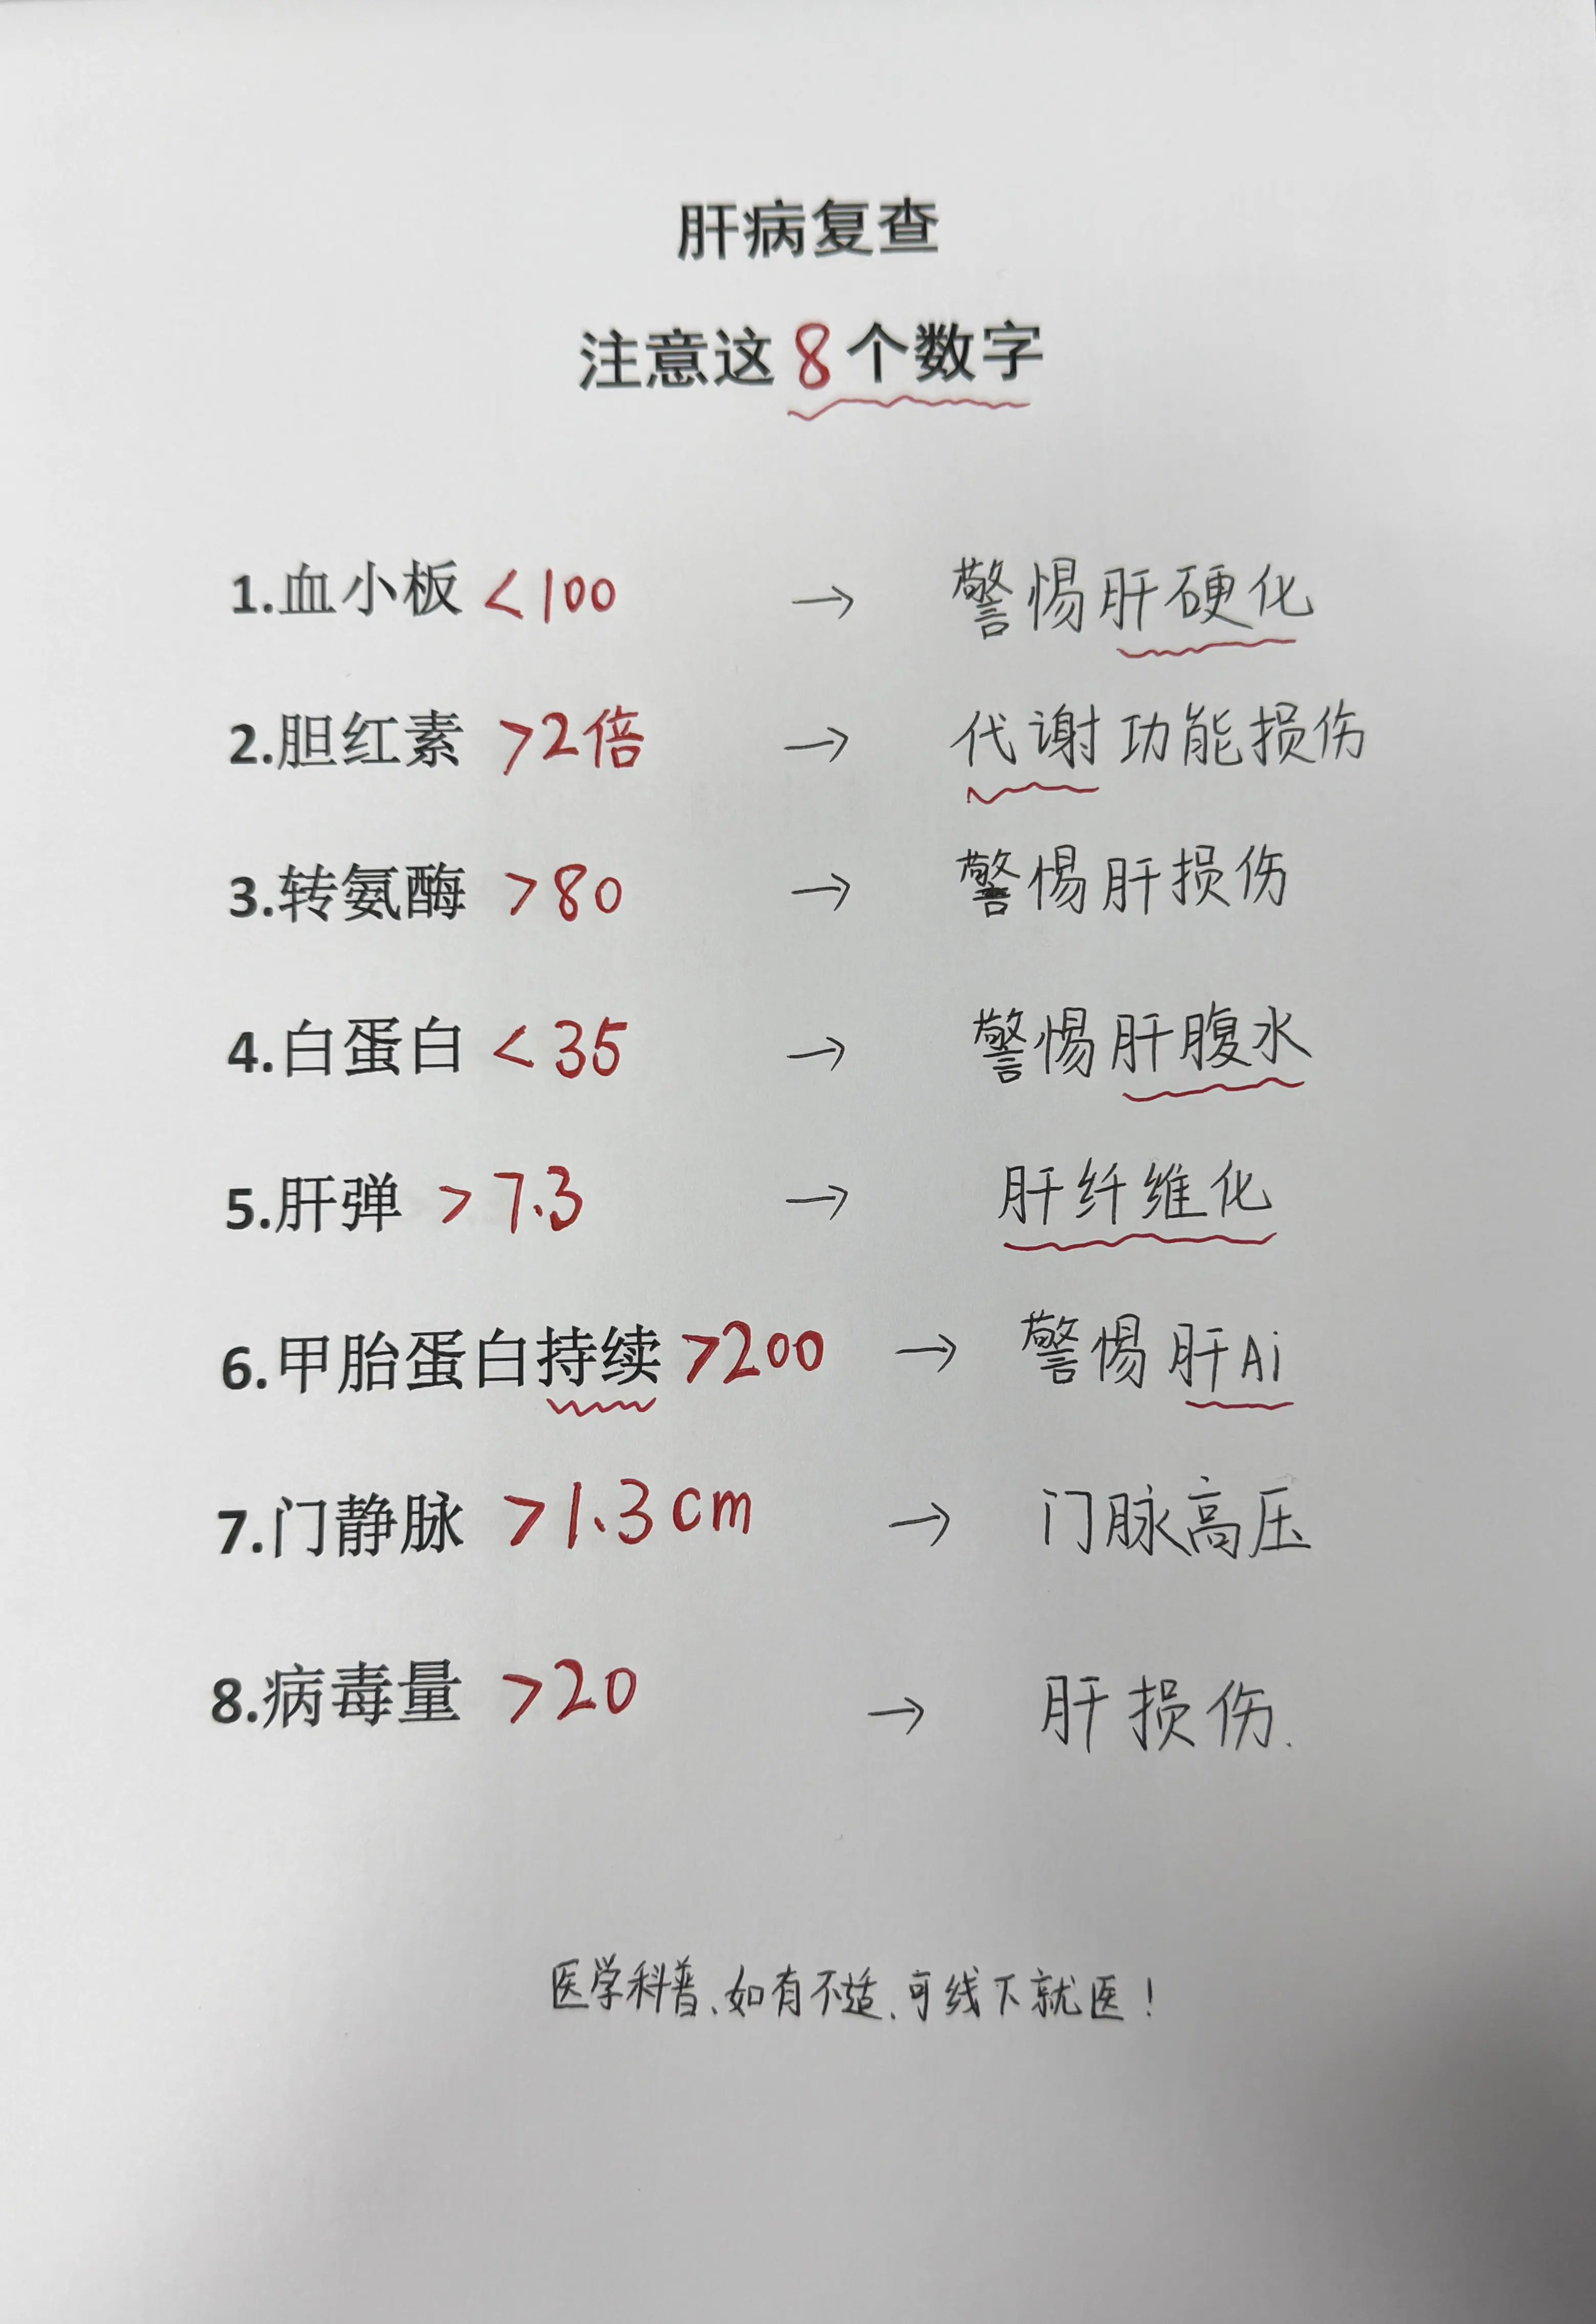 肝病复查
注意这8个数字
1.血小板 <100 → 警惕肝硬化
2.胆红素 >2倍 → 代谢功能损伤
3.转氨酶 >80 → 警惕肝损伤
4.白蛋白 <35 → 警惕肝腹水
5.肝弹 >7.3 → 肝纤维化
6.甲胎蛋白持续 >200 → 警惕肝Ai
7.门静脉 >1.3cm → 门脉高压
8.病毒量 >20 → 肝损伤.
医学科普、如有不适、可线下就医!